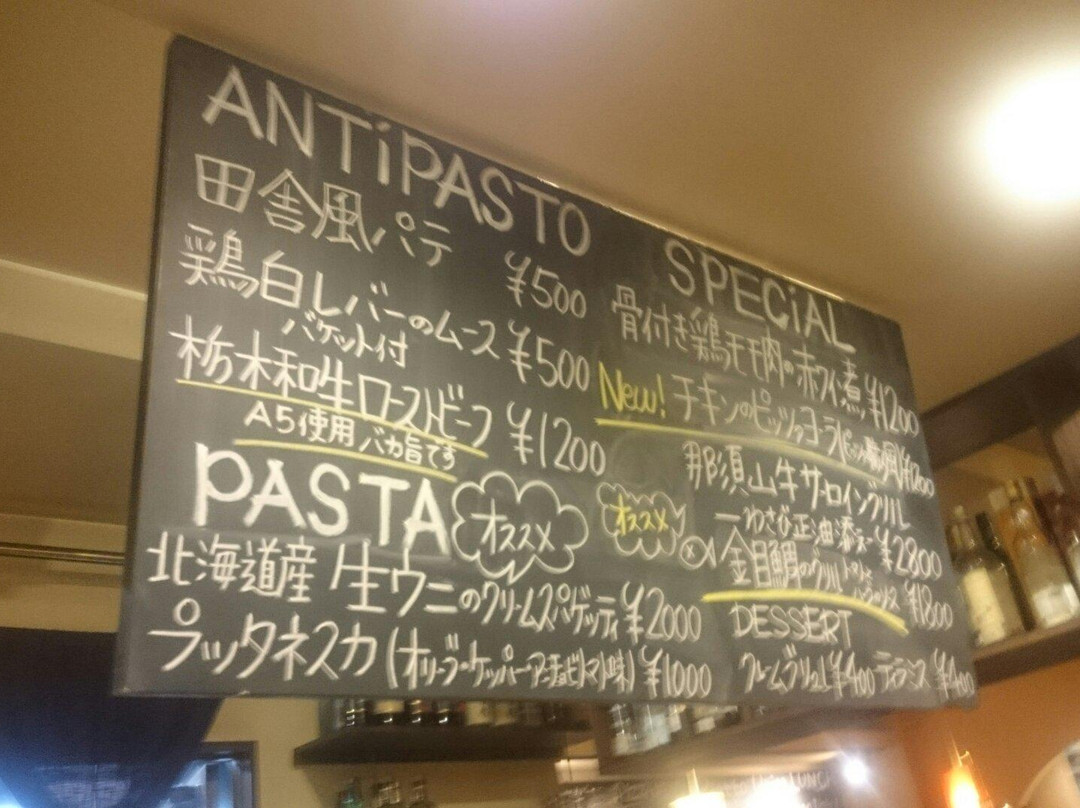 ANTiPASTO
田舎風パテ ¥500
鶏白レバーのムース ¥500
バケット付
栃木和牛ローストビーフ ¥1200
A5使用 バカ旨です
PASTA オススメ
北海道産 生ウニのクリームスパゲッティ ¥2000
プッタネスカ(オリーブ・ケッパー・アンチョビトマト味) ¥1000
SPECiAL
骨付き鶏モモ肉の赤ワイン煮 ¥1200
New! チキンのピッツァヨーラ ¥1200
那須山牛サーロイングリル
わさび正油添え ¥2800
オススメ
金目鯛のグリル ¥1800
DESSERT
クレームブリュレ ¥400 ティラミス ¥400